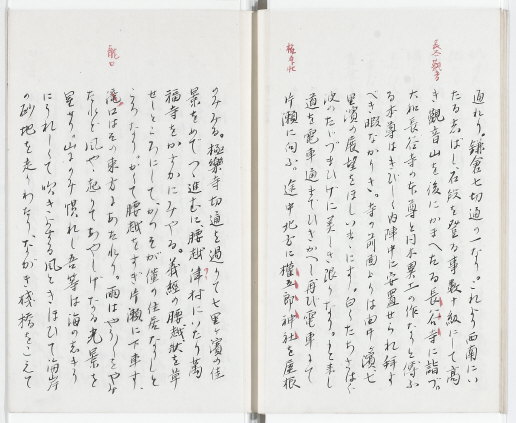 長谷観音
通れり。鎌倉七切通の一なり。これより西南にい
たる志ばし、石段を登る事数十級にして高
き観音山を後にかまへたる長谷寺に詣づ。
大和長谷寺の本尊と同木異工の作なりと傳ふ
る本尊はきびしく内陣中に安置せられ拝す
べき暇なかりき。寺の前面よりは由井ヶ濱七
里濱の展望をほしいまゝにす。白くたちさはぐ
波のたいづまひげに美しき眺となり。もと来し
道を電車通までひきかへし再び電車にて
片瀬に向ふ。途中北方に権五郎神社を屋根
のみみる。極楽寺切通を過りて七里濱の佳
景をめでつゝ進むに腰越津村にいたり萬
福寺をかすかにみやる。義経の腰越状を草
せしところにして、からそが僧の住居なりしと
ころなり。かくて腰越をすぎ片瀬に下車す。
龍口
瀧口はその東方にあたれり。雨はやうやくをやみ
たれど風や起りてあやしげなる光景を
呈せり。山にのみ慣れし吾等は海の志きり
にうれしくて吹き来る風ときほひて海岸
の砂地を走りわたり、ながき棧橋をこえて